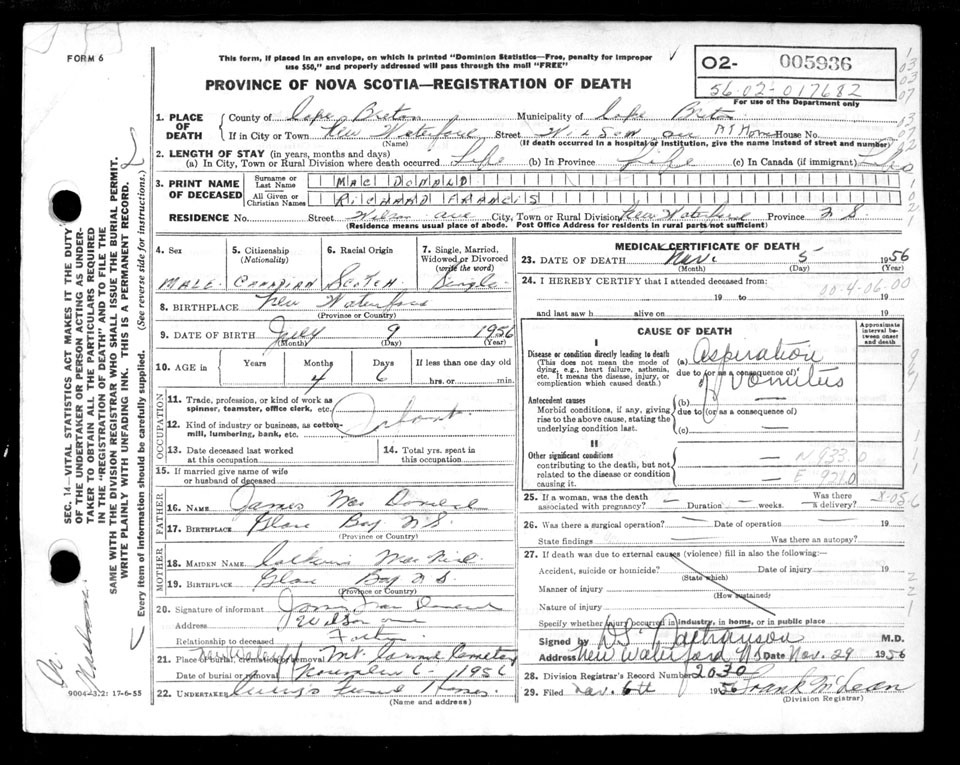 FORM 6
This form, if placed in an envelope, on which is printed "Dominion Statistics—Free, penalty for improper
use $50," and properly addressed will pass through the mail "FREE"
PROVINCE OF NOVA SCOTIA—REGISTRATION OF DEATH
O2- 005936
56-02-017682
For use of the Department only
1. PLACE OF DEATH
County of Cape Breton Municipality of Cape Breton
If in City or Town New Waterford Street House No.
(Name) (If death occurred in a hospital or institution, give the name instead of street and number)
2. LENGTH OF STAY (in years, months and days)
(a) In City, Town or Rural Division where death occurred Life (b) In Province Life (c) In Canada (if immigrant) Life
3. PRINT NAME OF DECEASED
Surname or Last Name MAC DONALD
All Given or Christian Names RICHARD FRANCIS
RESIDENCE No. Street Wilson ave City, Town or Rural Division New Waterford Province N S.
(Residence means usual place of abode. Post Office Address for residents in rural parts not sufficient)
4. Sex MALE
5. Citizenship (Nationality) CANADIAN
6. Racial Origin SCOTCH
7. Single, Married, Widowed or Divorced (write the word) Single
8. BIRTHPLACE New Waterford
(Province or Country)
9. DATE OF BIRTH July 9 1956
(Month) (Day) (Year)
10. AGE in Years Months 4 Days 6 If less than one day old
hrs. or min.
OCCUPATION
11. Trade, profession, or kind of work as spinner, teamster, office clerk, etc.
12. Kind of industry or business, as cotton-mill, lumbering, bank, etc. Infant
13. Date deceased last worked at this occupation
14. Total yrs. spent in this occupation
15. If married give name of wife or husband of deceased
FATHER
16. NAME James Mac Donald
17. BIRTHPLACE Glace Bay N S.
(Province or Country)
MOTHER
18. MAIDEN NAME Mac Neil
19. BIRTHPLACE Glace Bay N S.
(Province or Country)
20. Signature of informant James Mac Donald
Address Wilson ave
Relationship to deceased Father
21. Place of burial, cremation or removal New Waterford Mt. Carmel Cemetery
Date of burial or removal November 6 1956
22. UNDERTAKER Funeral Home
(Name and address)
MEDICAL CERTIFICATE OF DEATH
23. DATE OF DEATH Nov. 5 1956
(Month) (Day) (Year)
24. I HEREBY CERTIFY that I attended deceased from:
19 to 19
00-4-06-00
and last saw h alive on 19
CAUSE OF DEATH
Approximate interval between onset and death
I
Disease or condition directly leading to death
(This does not mean the mode of dying, e.g., heart failure, asthenia, etc. It means the disease, injury, or complication which caused death.)
(a) Aspiration
due to (or as a consequence of)
of Vomitus
Antecedent causes
Morbid conditions, if any, giving rise to the above cause, stating the underlying condition last.
(b) —
due to (or as a consequence of)
(c) —
II
Other significant conditions
contributing to the death, but not related to the disease or condition causing it.
— N 933.0
— E 921.0
25. If a woman, was the death associated with pregnancy? — Duration — weeks. Was there a delivery? —
26. Was there a surgical operation? — Date of operation — 19
State findings — Was there an autopsy?
27. If death was due to external causes (violence) fill in also the following:—
Accident, suicide or homicide? Date of injury 19
(State which)
Manner of injury
(How sustained)
Nature of injury
Specify whether injury occurred in industry, in home, or in public place
Signed by M.D.
Address New Waterford NS Date Nov. 29 1956
28. Division Registrar's Record Number 2030
29. Filed Nov. 6th 1956 Frank McLean
(Division Registrar)
SEC. 14—VITAL STATISTICS ACT MAKES IT THE DUTY
OF THE UNDERTAKER OR PERSON ACTING AS UNDER-
TAKER TO OBTAIN ALL THE PARTICULARS REQUIRED
IN THE "REGISTRATION OF DEATH" AND TO FILE THE
SAME WITH THE DIVISION REGISTRAR WHO SHALL ISSUE THE BURIAL PERMIT.
WRITE PLAINLY WITH UNFADING INK. THIS IS A PERMANENT RECORD.
Every item of information should be carefully supplied. (See reverse side for instructions.)
9004-3,2: 17-6-55